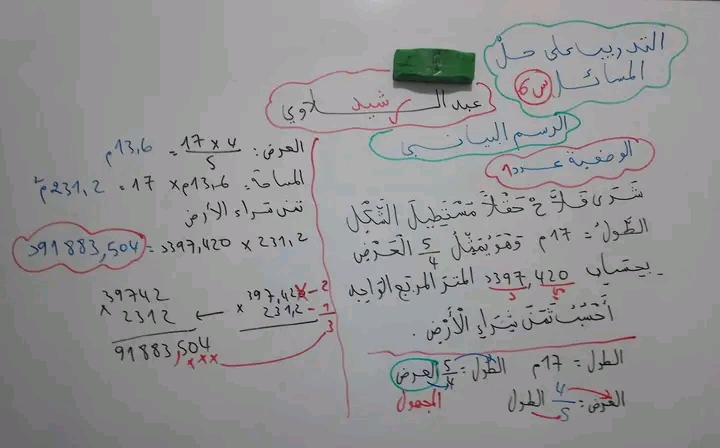 التدريب على حل
المسائل س6
عبد الرشيد لاوي
الرسم البياني
الوضعية عدد 1
شترى فلاح حقلا مستطيل الشكل
الطول: 17م وهو يمثل 5/4 العرض
بحساب 397,420د المتر المربع الواحد
أحسب ثمن شراء الأرض.
الطول = 17م الطول = 5/4 العرض
المجهول
العرض: 4/5 الطول
العرض: 17 x 4 / 5 = 13,6م
المساحة: 13,6م x 17 = 231,2م²
ثمن شراء الأرض
231,2 x 397,420د = 91883,504د
397,420 - 2
x 231,2 - 1
3
39742
x 2312
91883,504
xxx